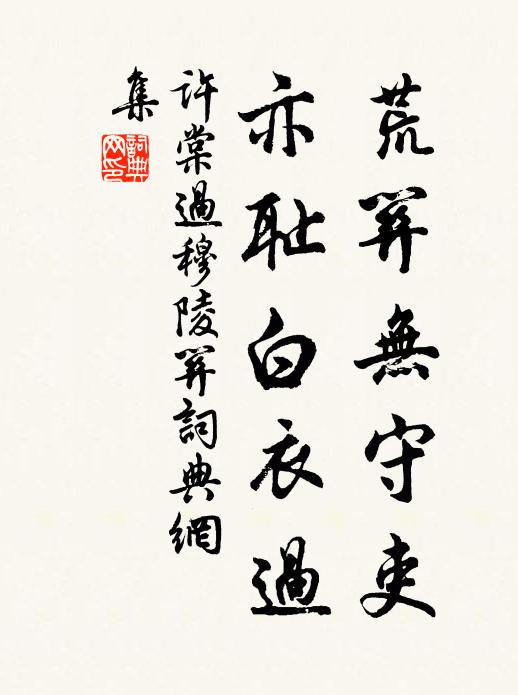 荒關無守吏
亦耻白衣過
許棠過穆陵關詞典網
集
詞典網印